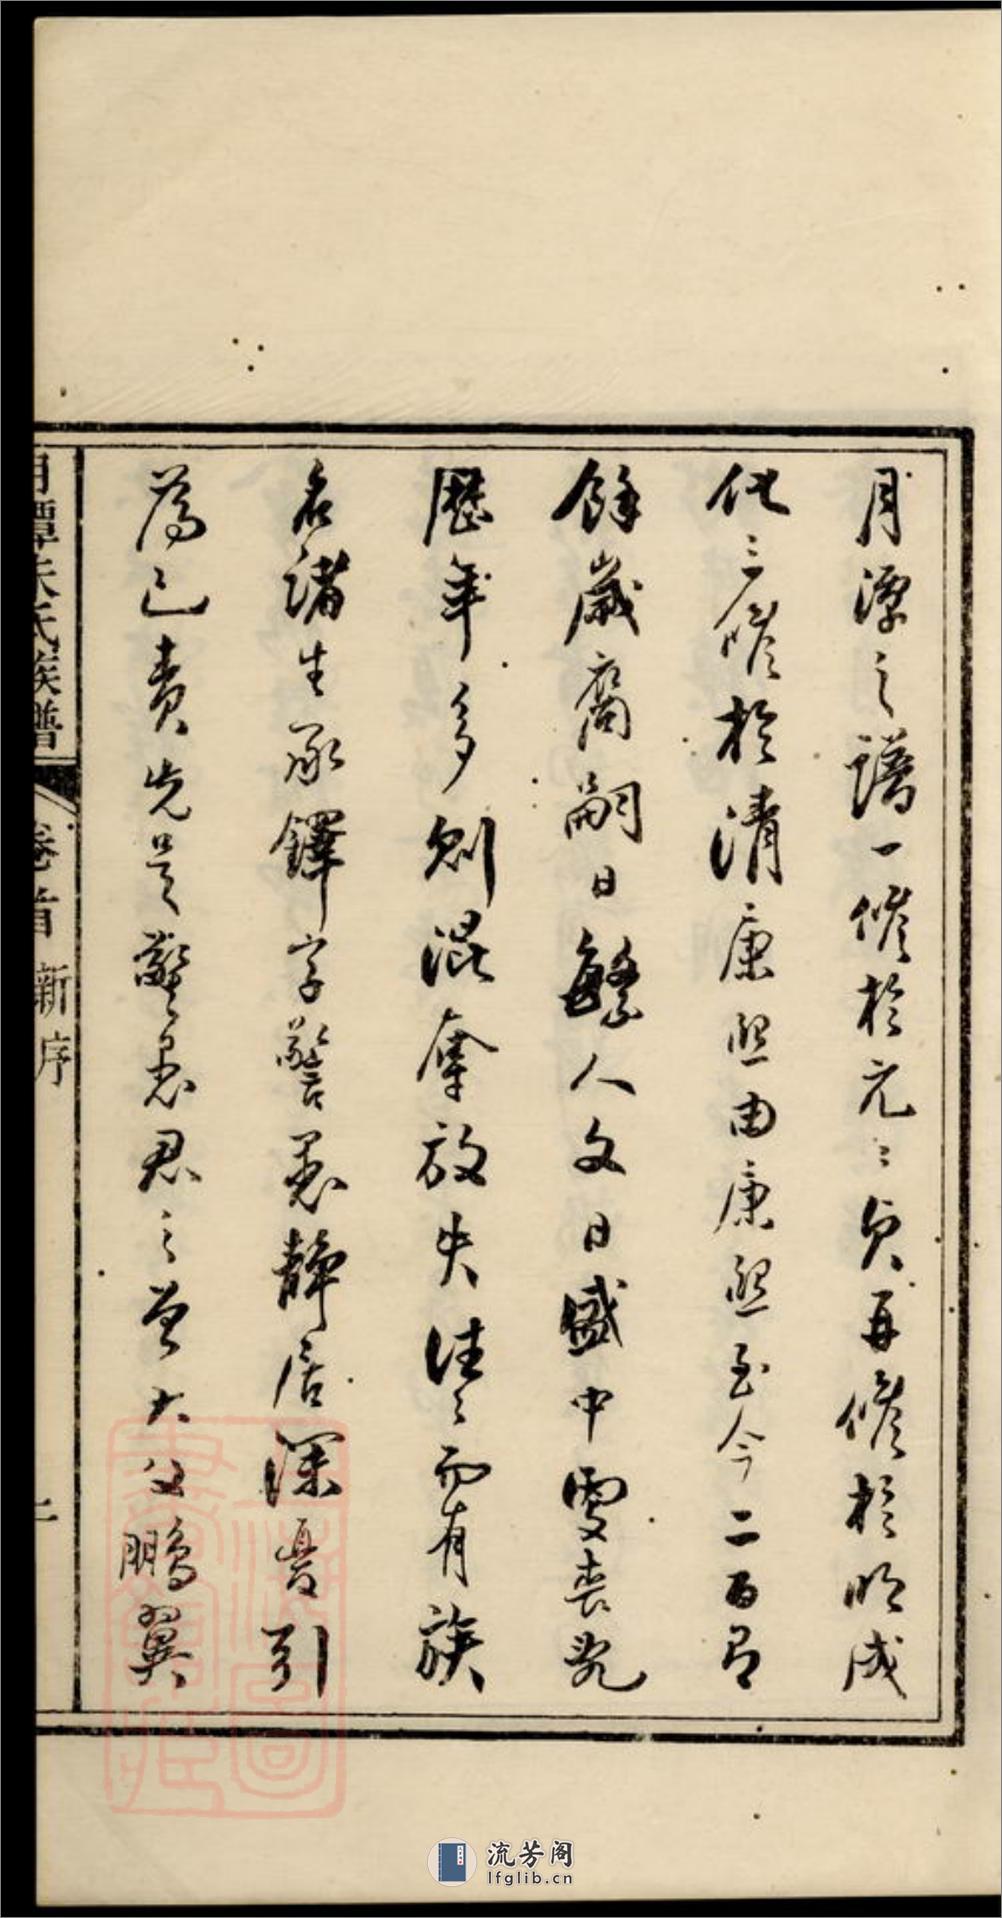 月潭之譜一修於元元貞再修於明成
化三修於清康熙由康熙至今二百有
餘歲裔嗣日繁人文日盛中更喪亂
歷年多則混牽放失往往而有族
名諸生承鐸字警愚靜居深脊引
為己責先是警愚君之曾大父鵬翼
月潭朱氏族譜
卷首 新序
一
流芳阁
lfglib.cn